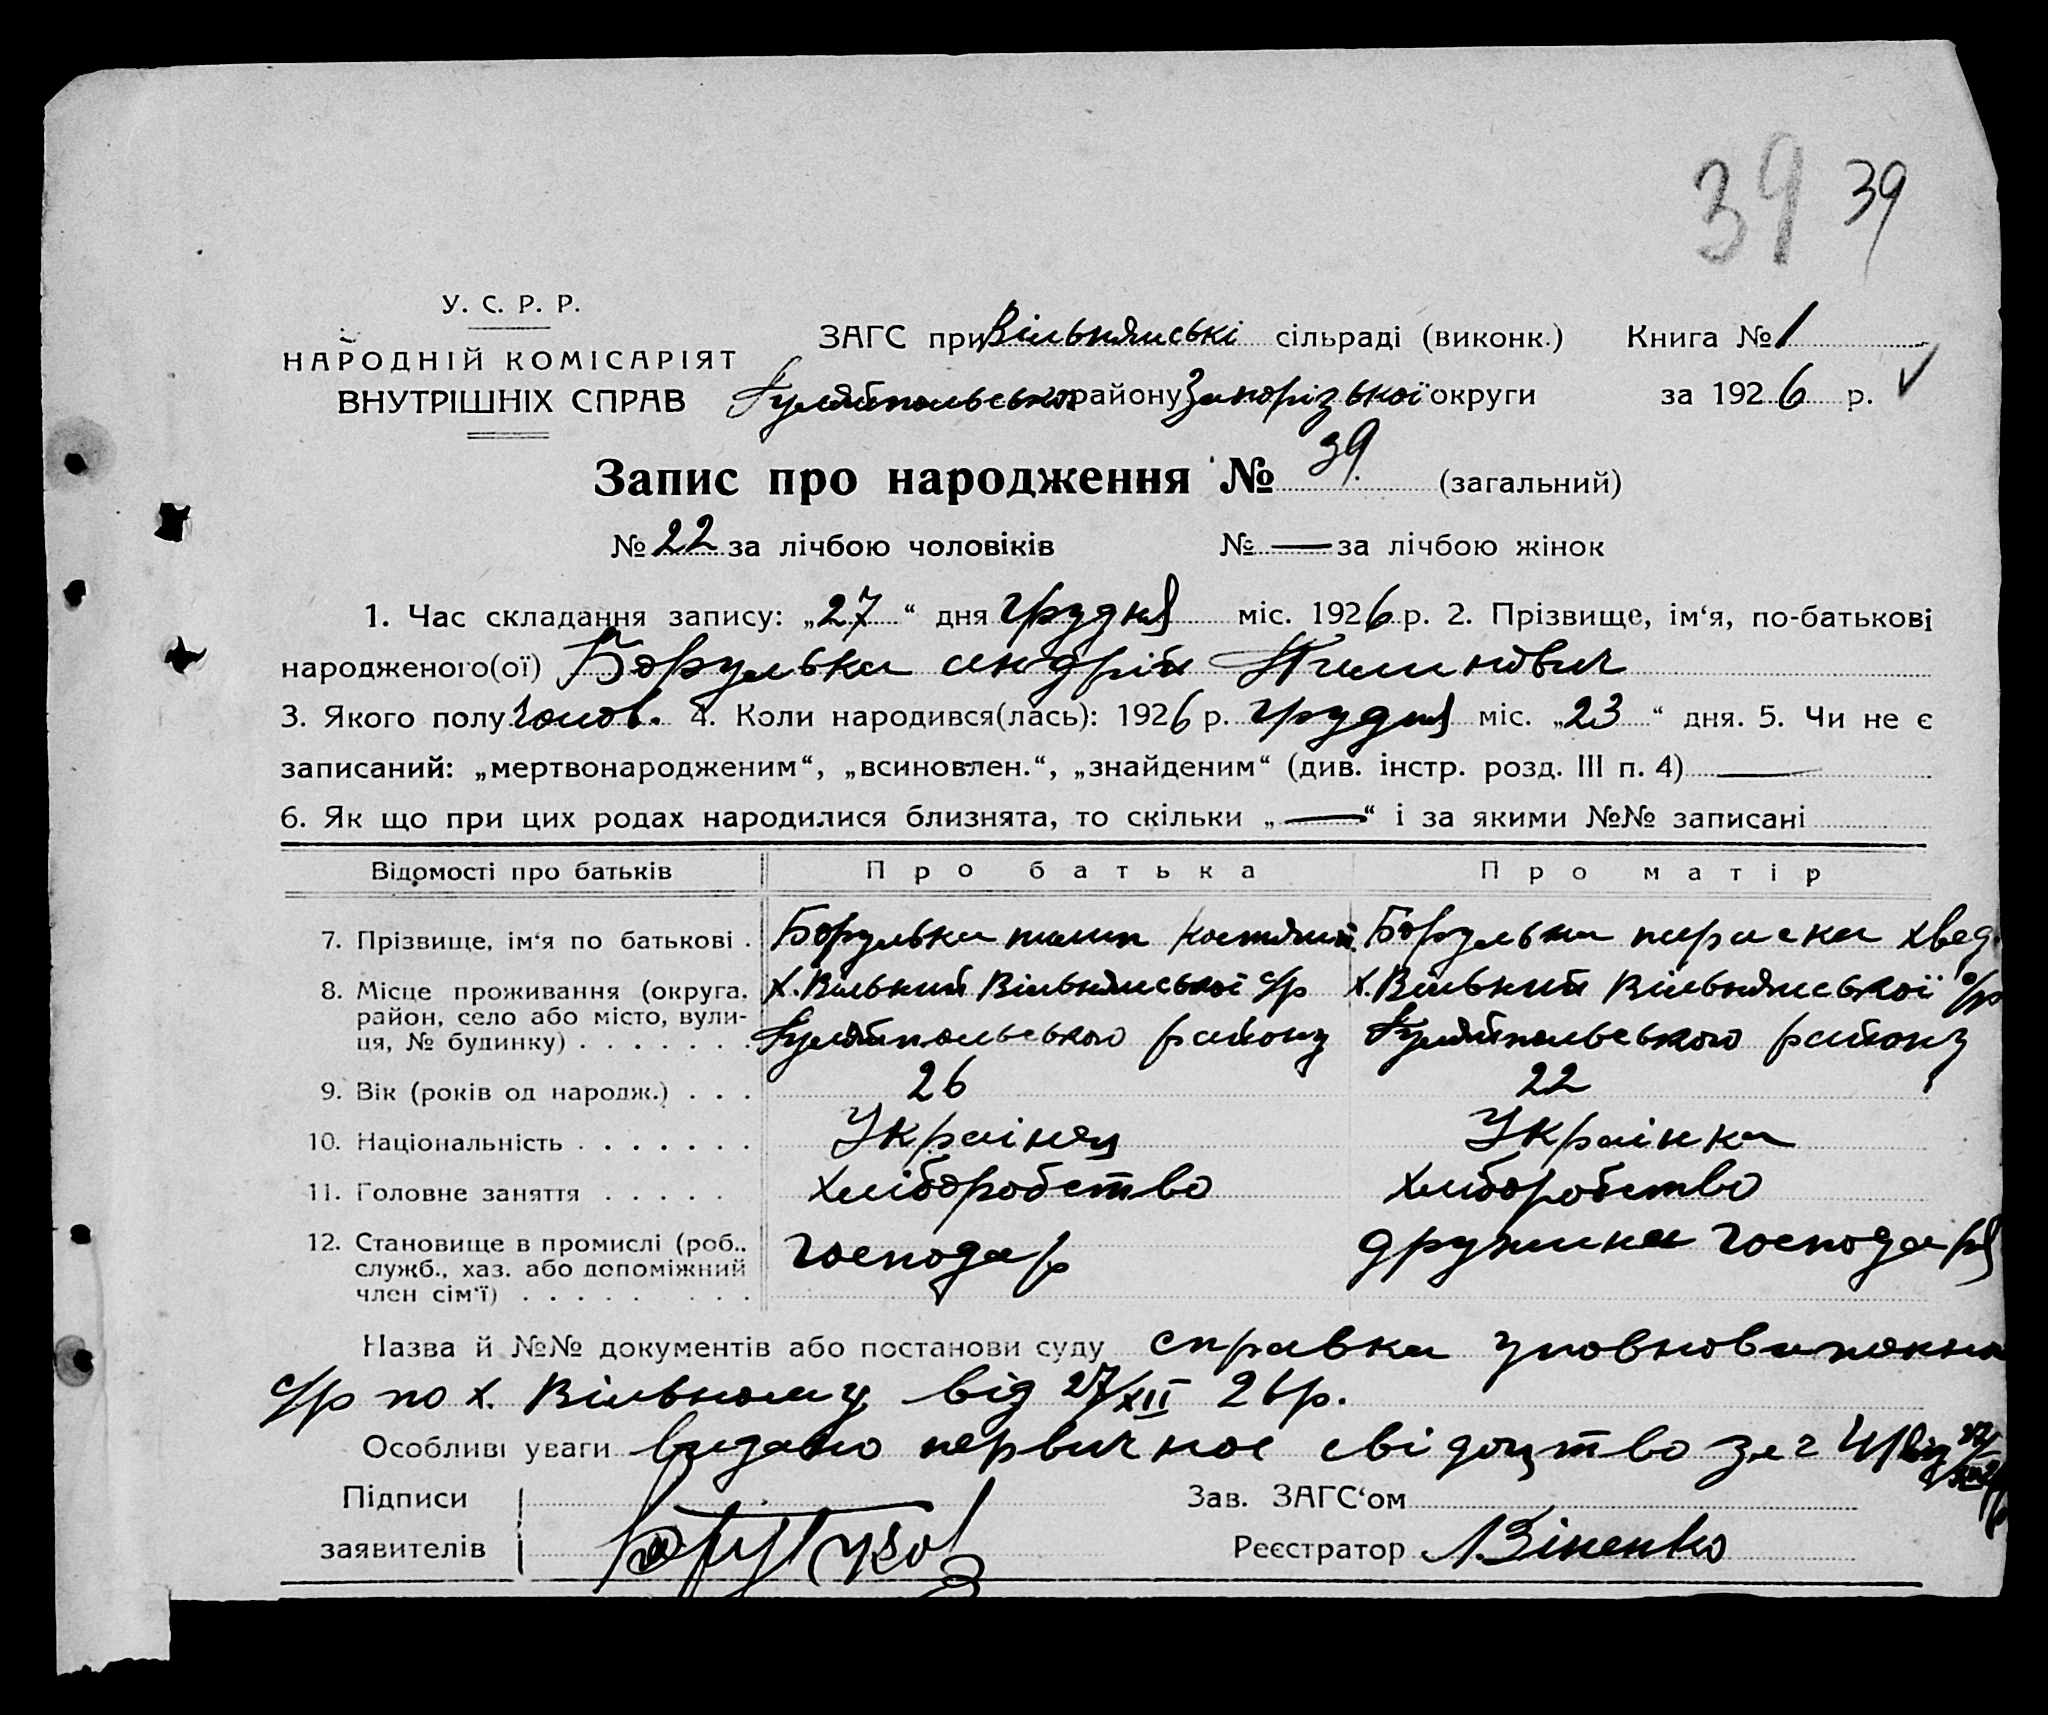 39 39
У. С. Р. Р.
НАРОДНІЙ КОМІСАРІЯТ
ВНУТРІШНІХ СПРАВ
ЗАГС при Вільнянські сільраді (виконк.) Книга № 1
Гуляйпольського району Запорізької округи за 1926 р.
Запис про народження № 39 (загальний)
№ 22 за лічбою чоловіків № — за лічбою жінок
1. Час складання запису: „27“ дня грудня міс. 1926 р. 2. Прізвище, ім‘я, по-батькові
народженого(ої) Борулька андрій Пилипович
3. Якого полу чолов. 4. Коли народився(лась): 1926 р. грудня міс. „23“ дня. 5. Чи не є
записаний: „мертвонародженим“, „всиновлен.“, „знайденим“ (див. інстр. розд. III п. 4) —
6. Як що при цих родах народилися близнята, то скільки „—“ і за якими №№ записані
Відомості про батьків Про батька Про матір
7. Прізвище, ім‘я по батькові . Борулька пилип Борулька параска хвед.
8. Місце проживання (округа, х. Вільний Вільнянської с/р х. Вільний Вільнянської с/р
район, село або місто, вули-
ця, № будинку) . . . . . . . Гуляйпольського району Гуляйпольського району
9. Вік (років од народж.) . . . 26 22
10. Національність . . . . . . . Українец Українка
11. Головне заняття . . . . . хліборобство хліборобство
12. Становище в промислі (роб., господар дружина господаря
служб., хаз. або допоміжний
член сім‘ї) . . . . . . . .
Назва й №№ документів або постанови суду справка уповноваженого
с/р по х. Вільному від 27/XII 26 р.
Особливі уваги видано первичное свідоцтво за ч 41 від
Підписи Зав. ЗАГС‘ом
заявителів Реєстратор